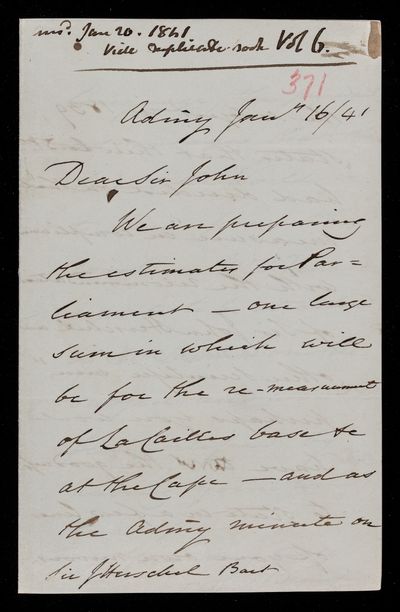 ansd. Jan 20. 1841
Vide duplicate book Vol 6.
371
Admy Jany 16/41
Dear Sir John
We are preparing
the estimates for Par=
liament — one large
sum in which will
be for the re-measurement
of LaCailles base &c
at the Cape — and as
the Admy minute on
Sir J Herschel Bart